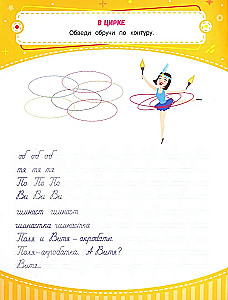 В ЦИРКЕ
Обведи обручи по контуру.
об об об
тя тя тя
По По По
Ви Ви Ви
гимнаст гимнаст
гимнастка гимнастка
Поля и Витя – акробаты.
Поля – акробатка. А Витя?
Витя